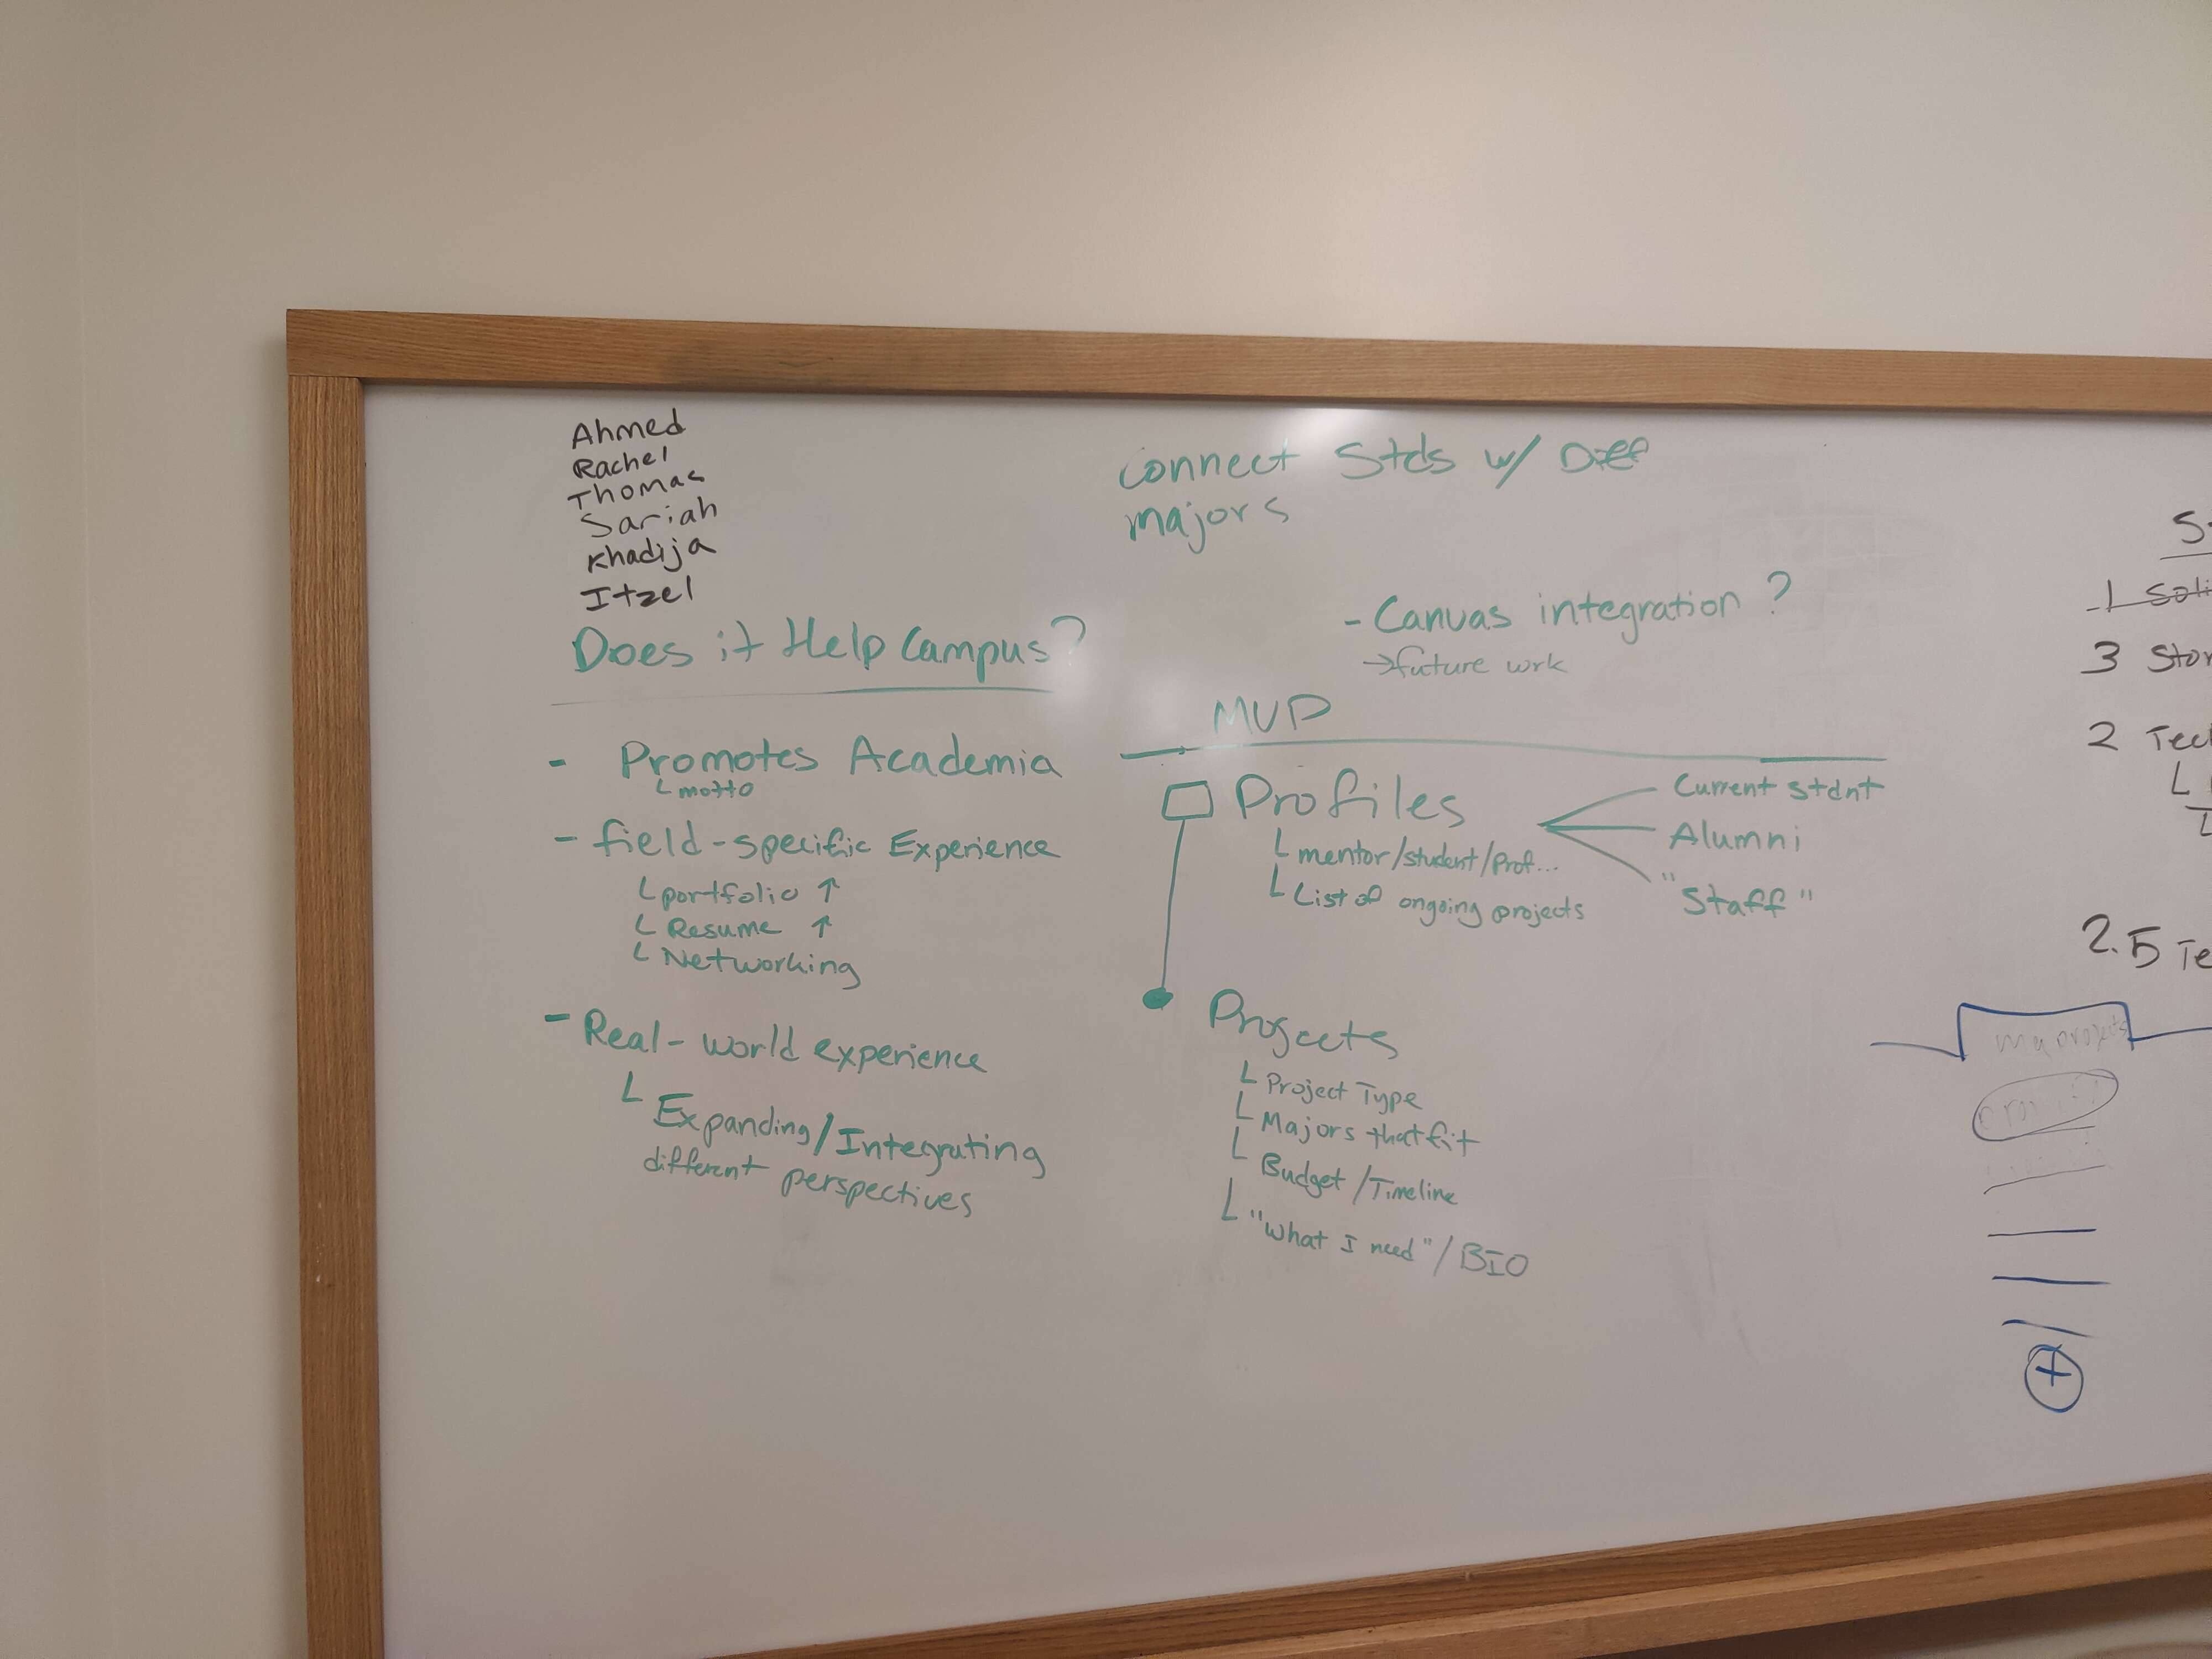 Ahmed
Rachel
Thomas
Sariah
Khadija
Itzel
Does it Help Campus?
- Promotes Academia
└ motto
- field-specific Experience
└ portfolio ↑
└ Resume ↑
└ Networking
- Real-world experience
└ Expanding/Integrating
different perspectives
connect Stds w/ Diff
majors
- Canvas integration ?
→ future work
MVP
Profiles
└ mentor/student/Prof...
└ List of ongoing projects
Current stdnt
Alumni
"Staff"
Projects
└ Project Type
└ Majors that fit
└ Budget/Timeline
└ "What I need"/BIO
1
3
2
2.5
my projects
+